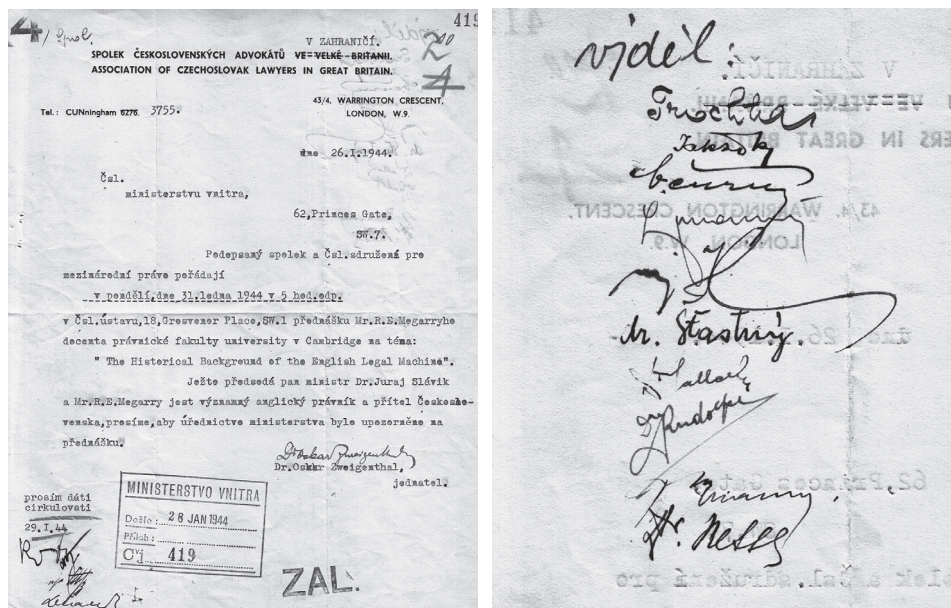 4/ Spol.
419
V ZAHRANIČÍ.
SPOLEK ČESKOSLOVENSKÝCH ADVOKÁTŮ VE VELKÉ BRITANII.
ASSOCIATION OF CZECHOSLOVAK LAWYERS IN GREAT BRITAIN.
43/4, WARRINGTON CRESCENT,
Tel.: CUNningham 6276. 3755.
LONDON, W.9.
dne 26.I.1944.
Čsl.
ministerstvu vnitra,
62,Princes Gate,
SW.7.
Podepsaný spolek a Čsl.sdružení pro
mezinárodní právo pořádají
v pondělí,dne 31.ledna 1944 v 5 hod.odp.
v Čsl.ústavu,18,Grosvenor Place,SW.1 přednášku Mr.R.E.Megarryho
docenta právnické fakulty university v Cambridge na téma:
" The Historical Background of the English Legal Machine".
Ježto předsedá pan ministr Dr.Juraj Slávik
a Mr.R.E.Megarry jest významný anglický právník a přítel Českoslo-
venska,prosíme,aby úřednictvo ministerstva bylo upozorněno na
přednášku.
Dr Oskar Zweigenthal
Dr.Oskar Zweigenthal,
jednatel.
prosím dáti
cirkulovati
29.I.44
MINISTERSTVO VNITRA
Došlo: 28 JAN 1944
Příloh:
Čj. 419
ZAL.
viděl:
Trochta
Dr. Šťastný.
Dr Rudolf